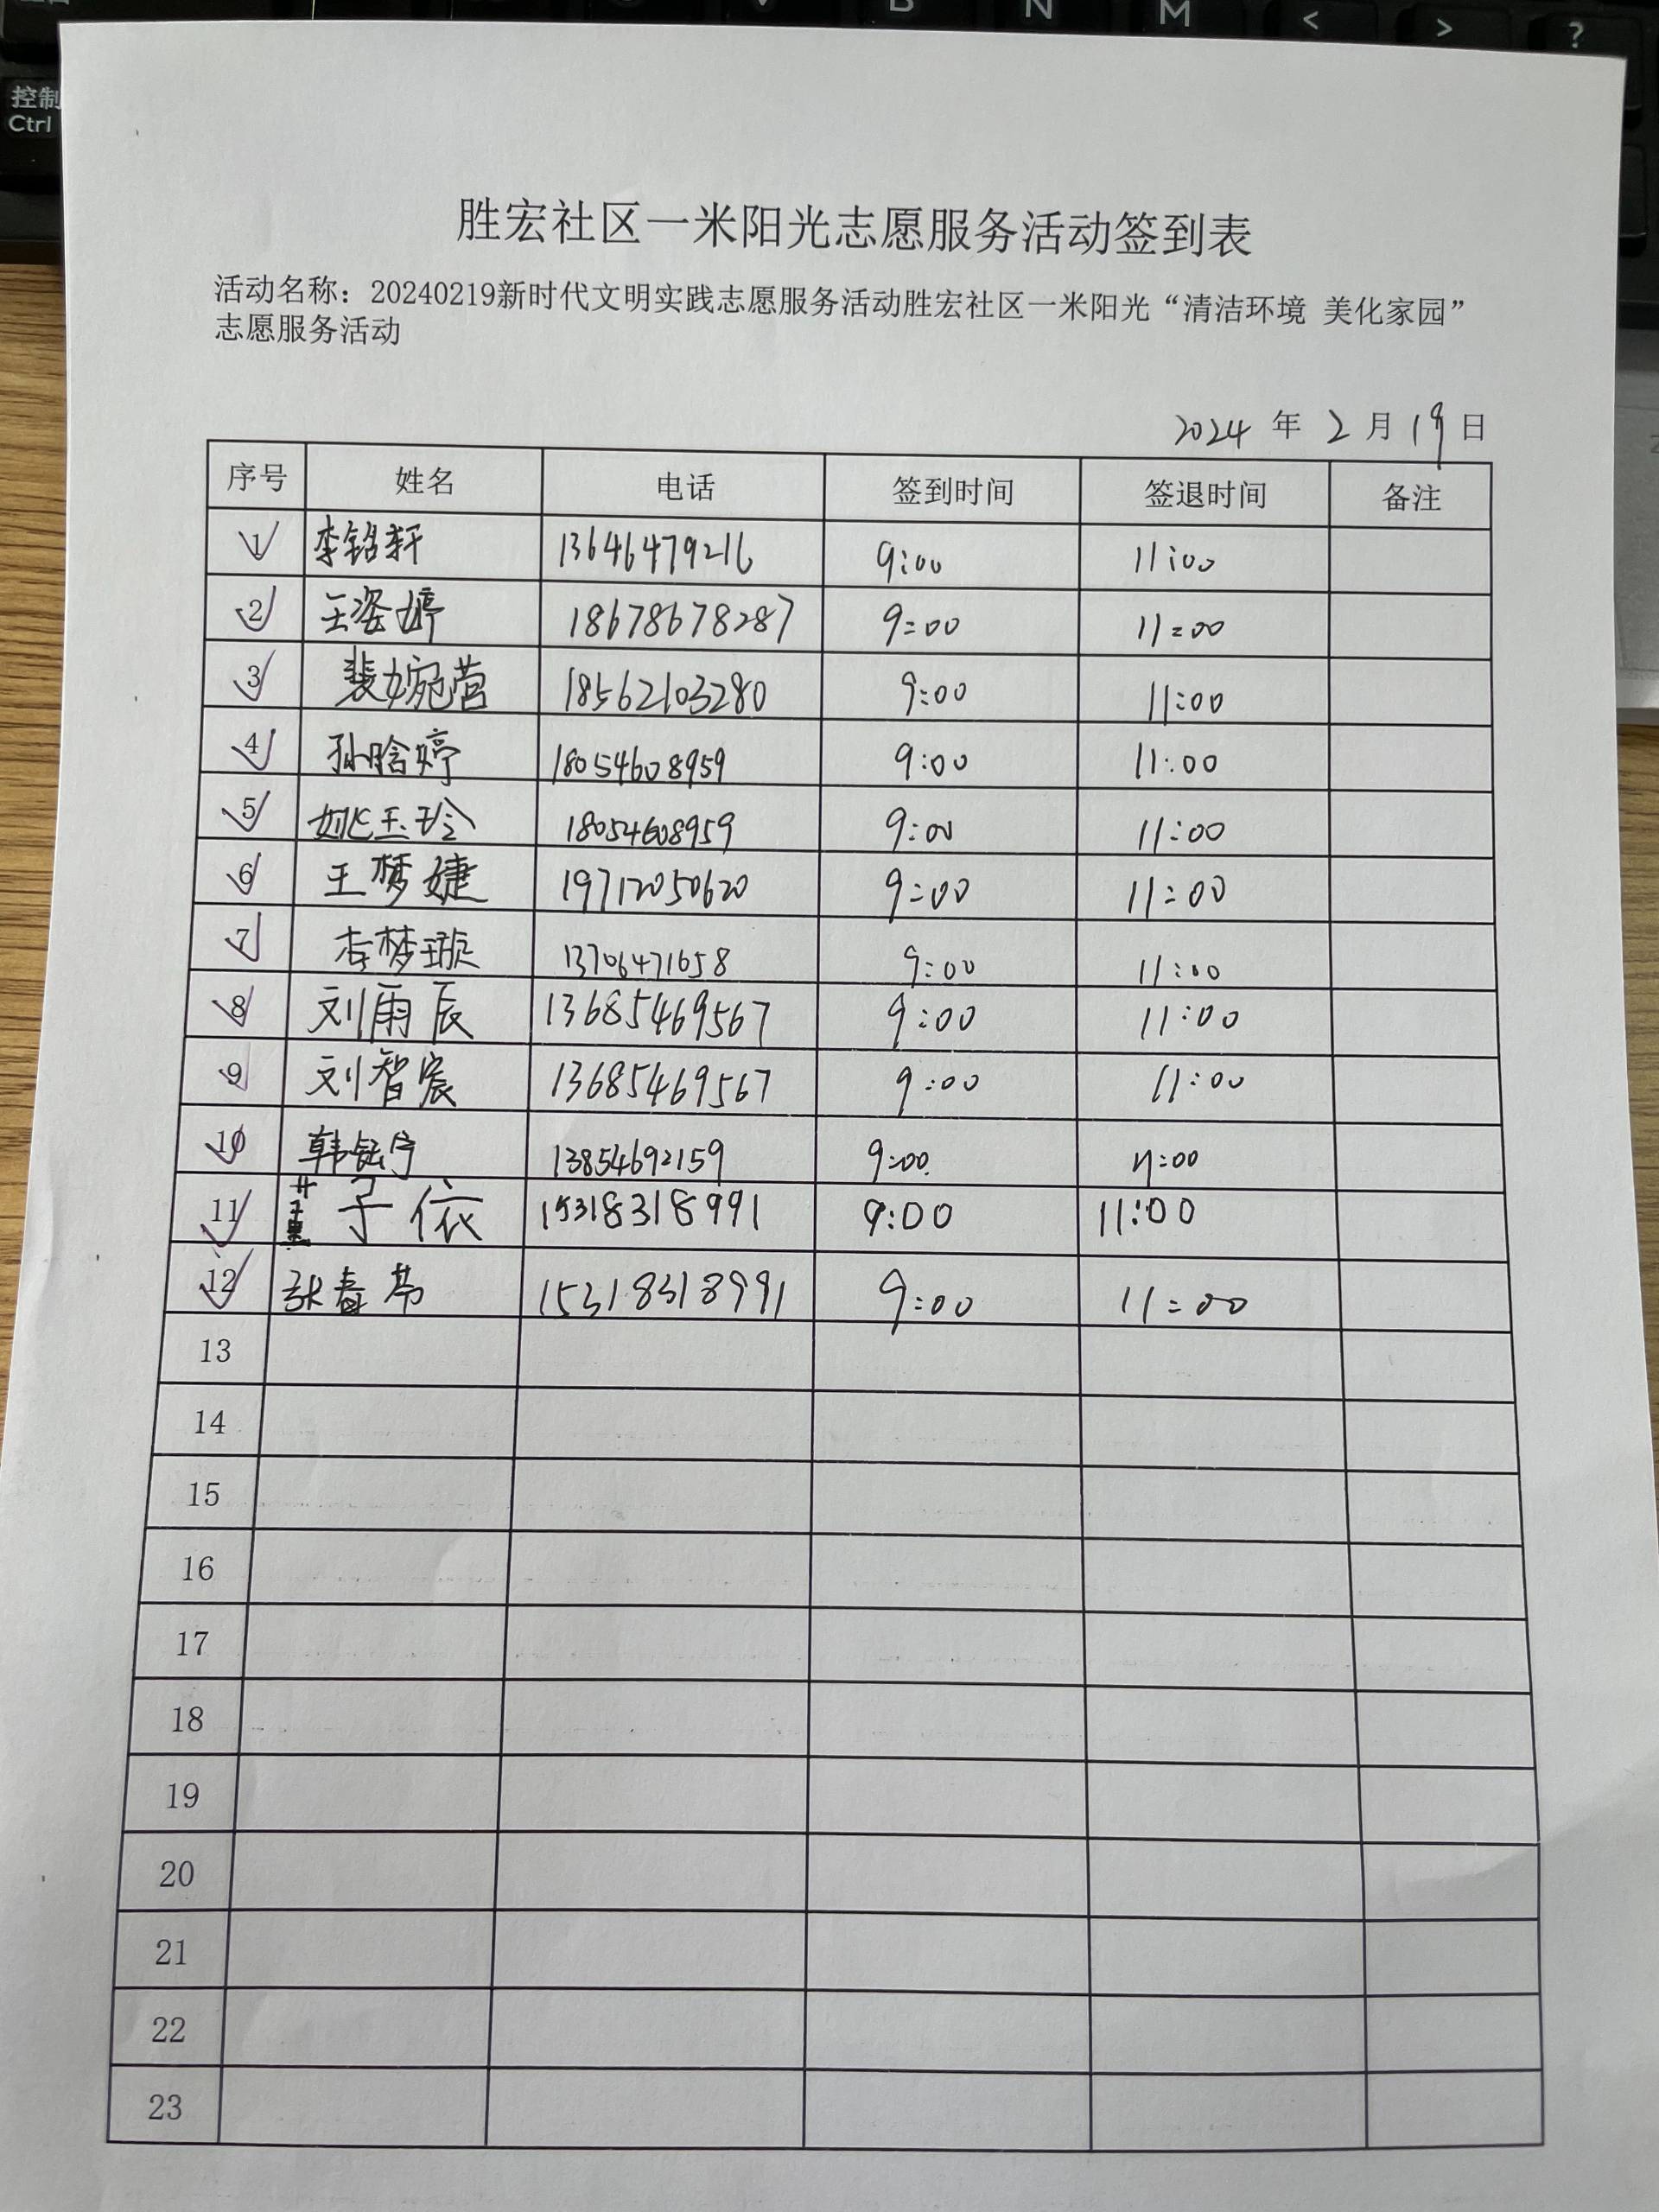 控制
Ctrl
B N M < > ?
胜宏社区一米阳光志愿服务活动签到表
活动名称：20240219新时代文明实践志愿服务活动胜宏社区一米阳光“清洁环境 美化家园”
志愿服务活动
2024 年 2 月 19 日
序号 姓名 电话 签到时间 签退时间 备注
1 李铭轩 13646479216 9:00 11:00
2 王姿婷 18678678287 9:00 11:00
3 裴婉营 18562103280 9:00 11:00
4 孙晗婷 18054608959 9:00 11:00
5 姚玉玲 18054608959 9:00 11:00
6 王梦婕 19712050620 9:00 11:00
7 李梦璇 13706471658 9:00 11:00
8 刘雨辰 13685469567 9:00 11:00
9 刘智宸 13685469567 9:00 11:00
10 韩 宁 13854692159 9:00 11:00
11 子依 15318318991 9:00 11:00
12 张春 15318318991 9:00 11:00
13
14
15
16
17
18
19
20
21
22
23